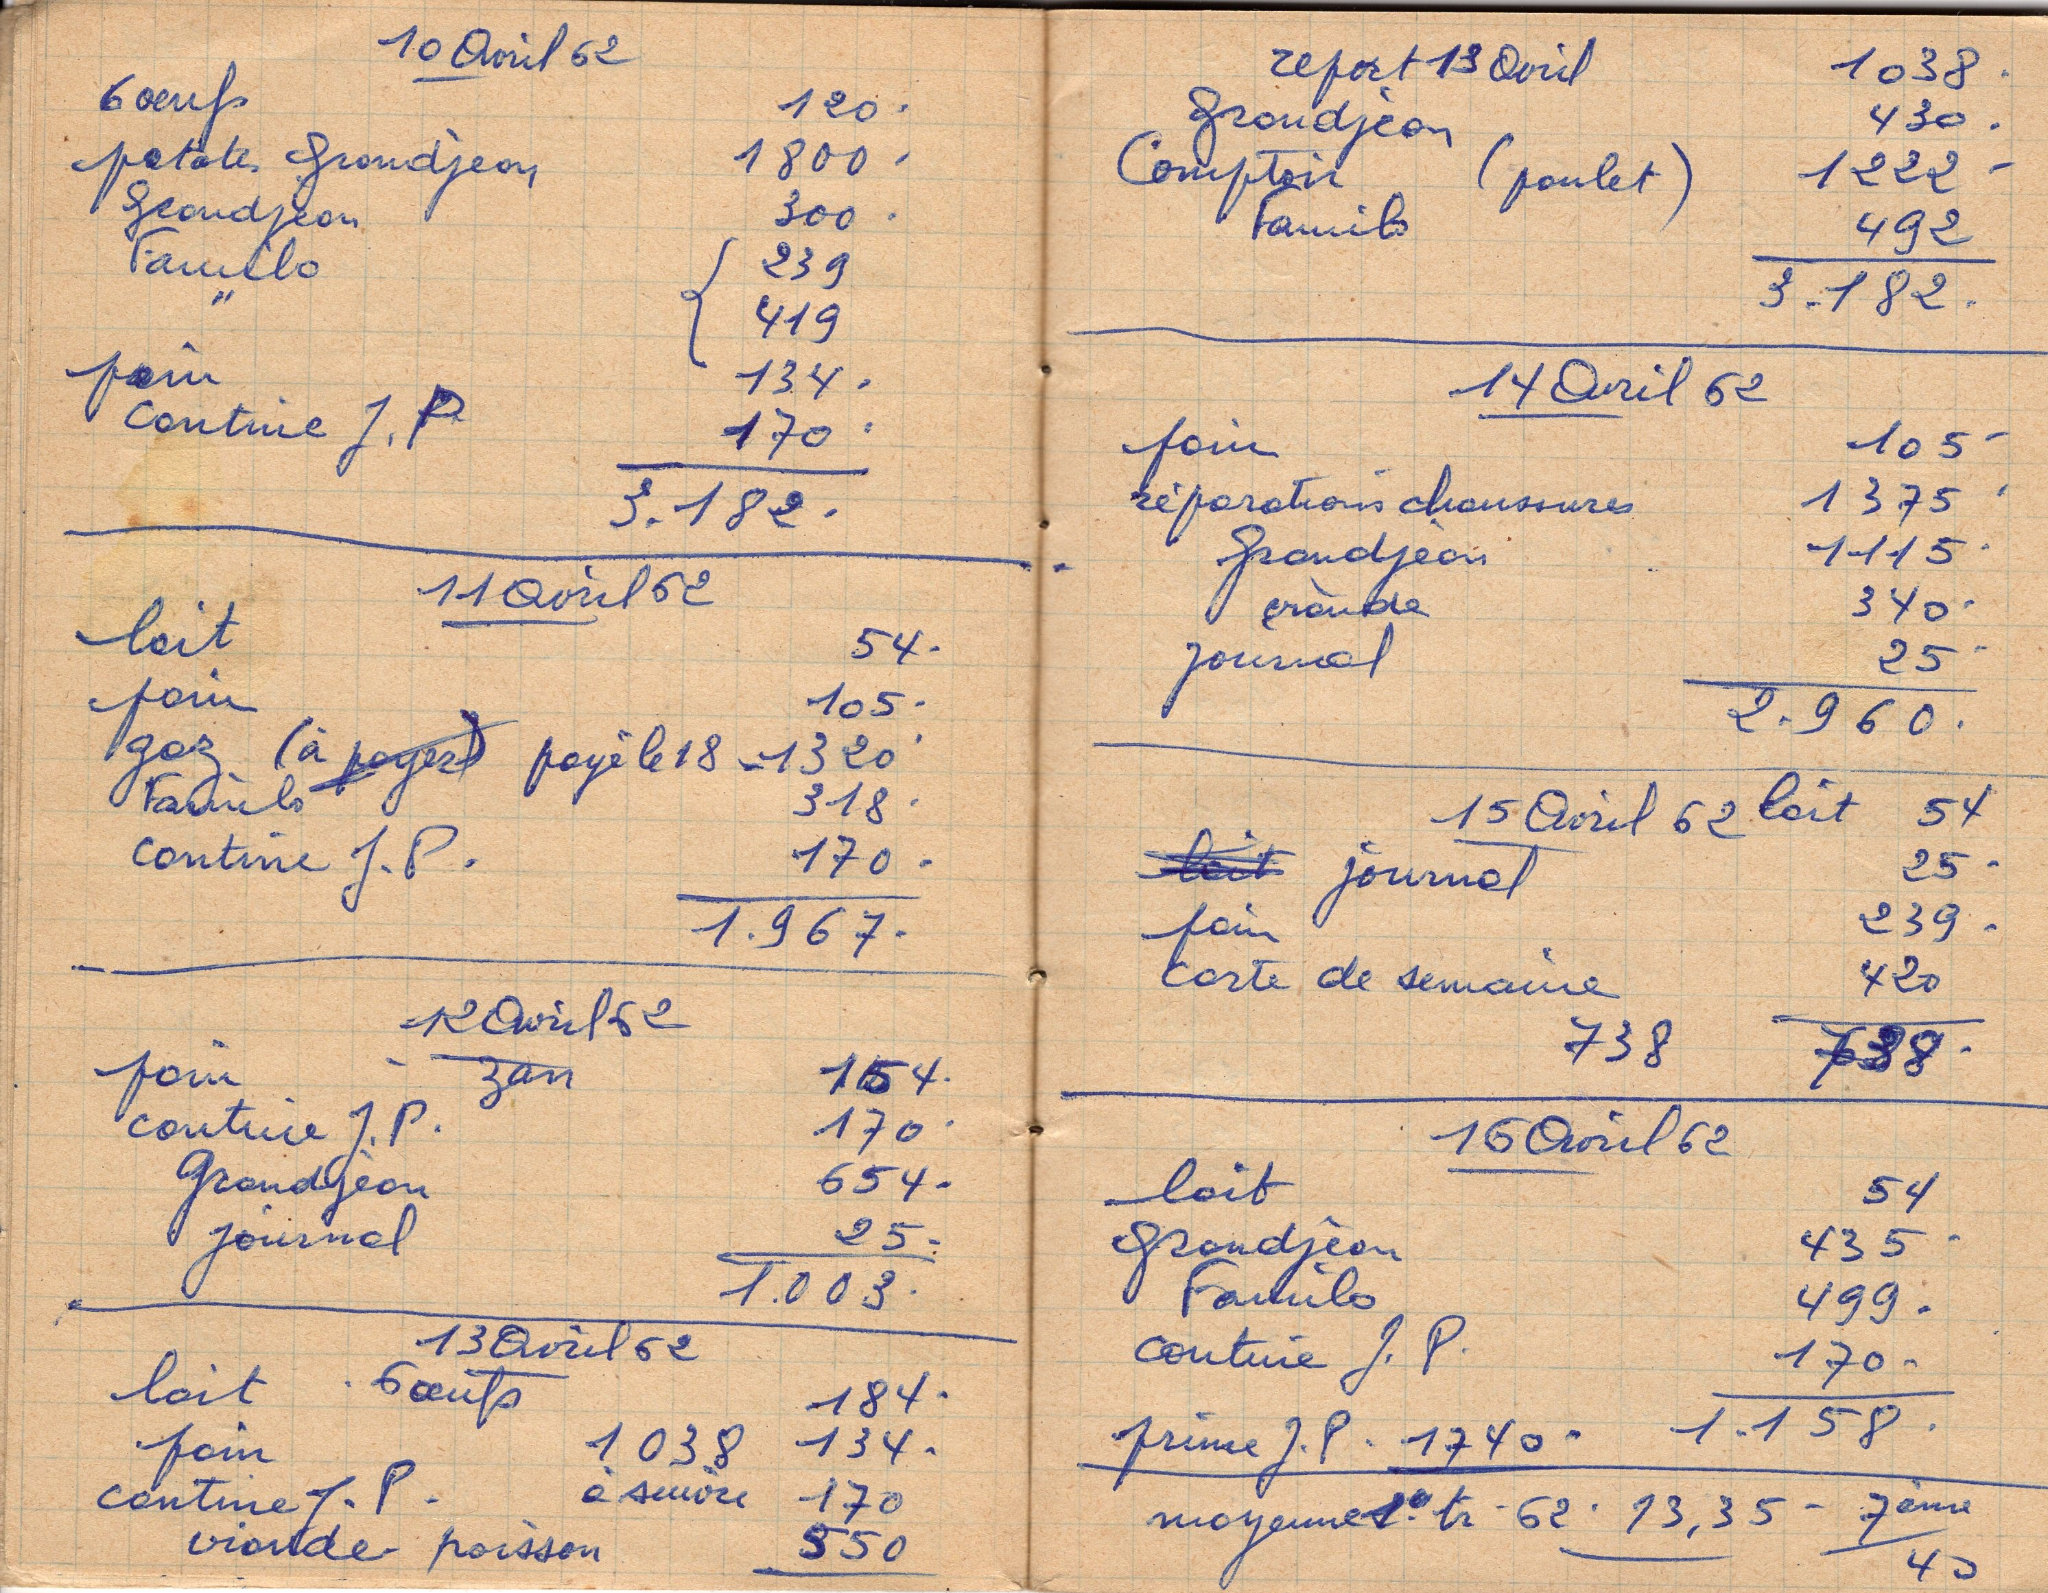 10 Avril 62
6 œufs 120.
patates Grandjean 1800.
Grandjean 300.
Familo 239
" 419
pain 134.
cantine J.P. 170.
3.182.
11 Avril 62
lait 54.
pain 105.
gaz (à payer) payé le 18 1320
Familo 318.
cantine J.P. 170.
1.967.
12 Avril 62
pain - zan 154.
cantine J.P. 170.
Grandjean 654.
journal 25.
1.003.
13 Avril 62
lait . 6 œufs 184.
pain 1038 134.
cantine J.P. à suivre 170
viande - poisson 550
report 13 Avril 1038.
Grandjean 430.
Comptoir (poulet) 1222 -
Familo 492
3.182.
14 Avril 62
pain 105 -
réparations chaussures 1375
Grandjean 1115.
viande 340.
journal 25 -
2.960.
15 Avril 62 lait 54
lait journal 25.
pain 239.
carte de semaine 420
738 738.
16 Avril 62
lait 54
Grandjean 435 -
Familo 499.
cantine J.P. 170.
1.158.
prime J.P. 1740.
moyenne 1º tr - 62 . 13,35 - 7ème
40